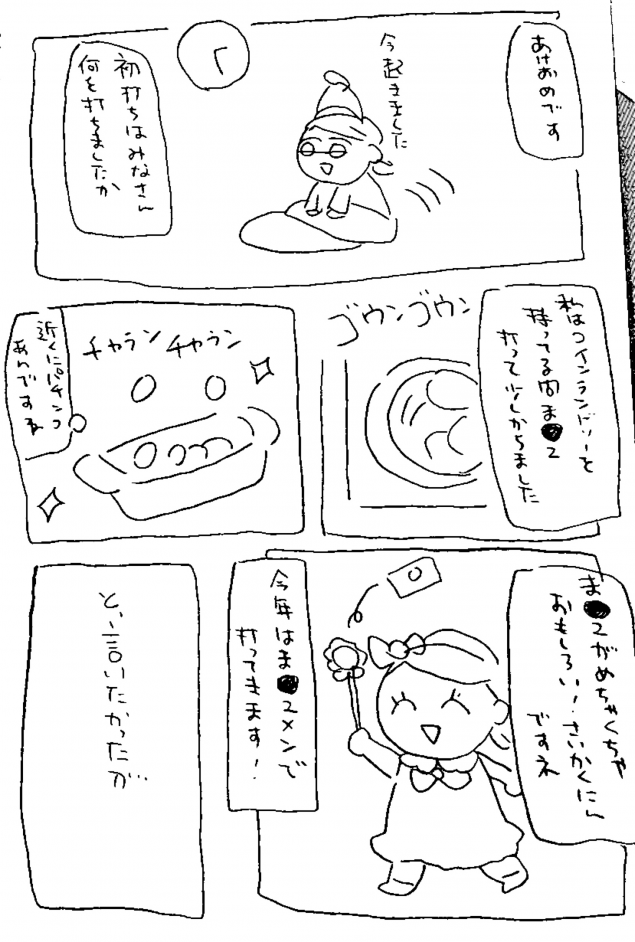 あけおめです
今起きました
初打ちはみなさん
何を打ちましたか
私はコインランドリーを
待ってる間ま●2
打って少しかちました
ゴウンゴウン
チャラン チャラン
近くにパチンコ
あんですね
ま●2がめちゃくちゃ
おもしろい!さいかくにん
ですネ
今年はま●2メンで
打ってきます!
と、言いたかったが…